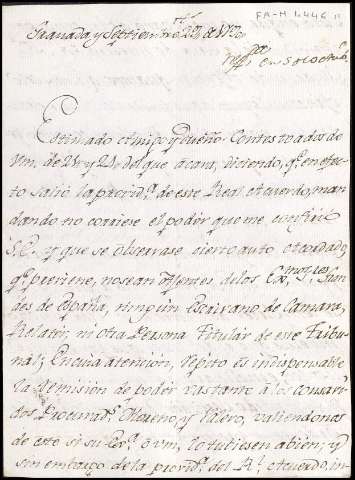 FA-M 1.446
Granada y Septiembre 28 de
Estimado Amigo y Dueño. Contesto a dos de
Vm. de 20 y 21, del que acava, diciendo, qe. en efec-
to salió la provida. de este Real Acuerdo, man
dando no corriese el poder que me confirió
S.E. y que se observase cierto auto acordado,
qe. previene, no sean Agentes de los Exmos. Sres. Gran
des de España, ningun Escrivano de Camara,
Relator, ni otra Persona Titular de este Tribu-
nal; En cuia atención, repito es indispensable
la remision de poder vastante á los consavi-
dos Procuras. Moreno, y valiendonos
de esto si su Exa. ó vm, lo tubiesen a bien; y
sin embargo de la provida. del Rl. Acuerdo, in-